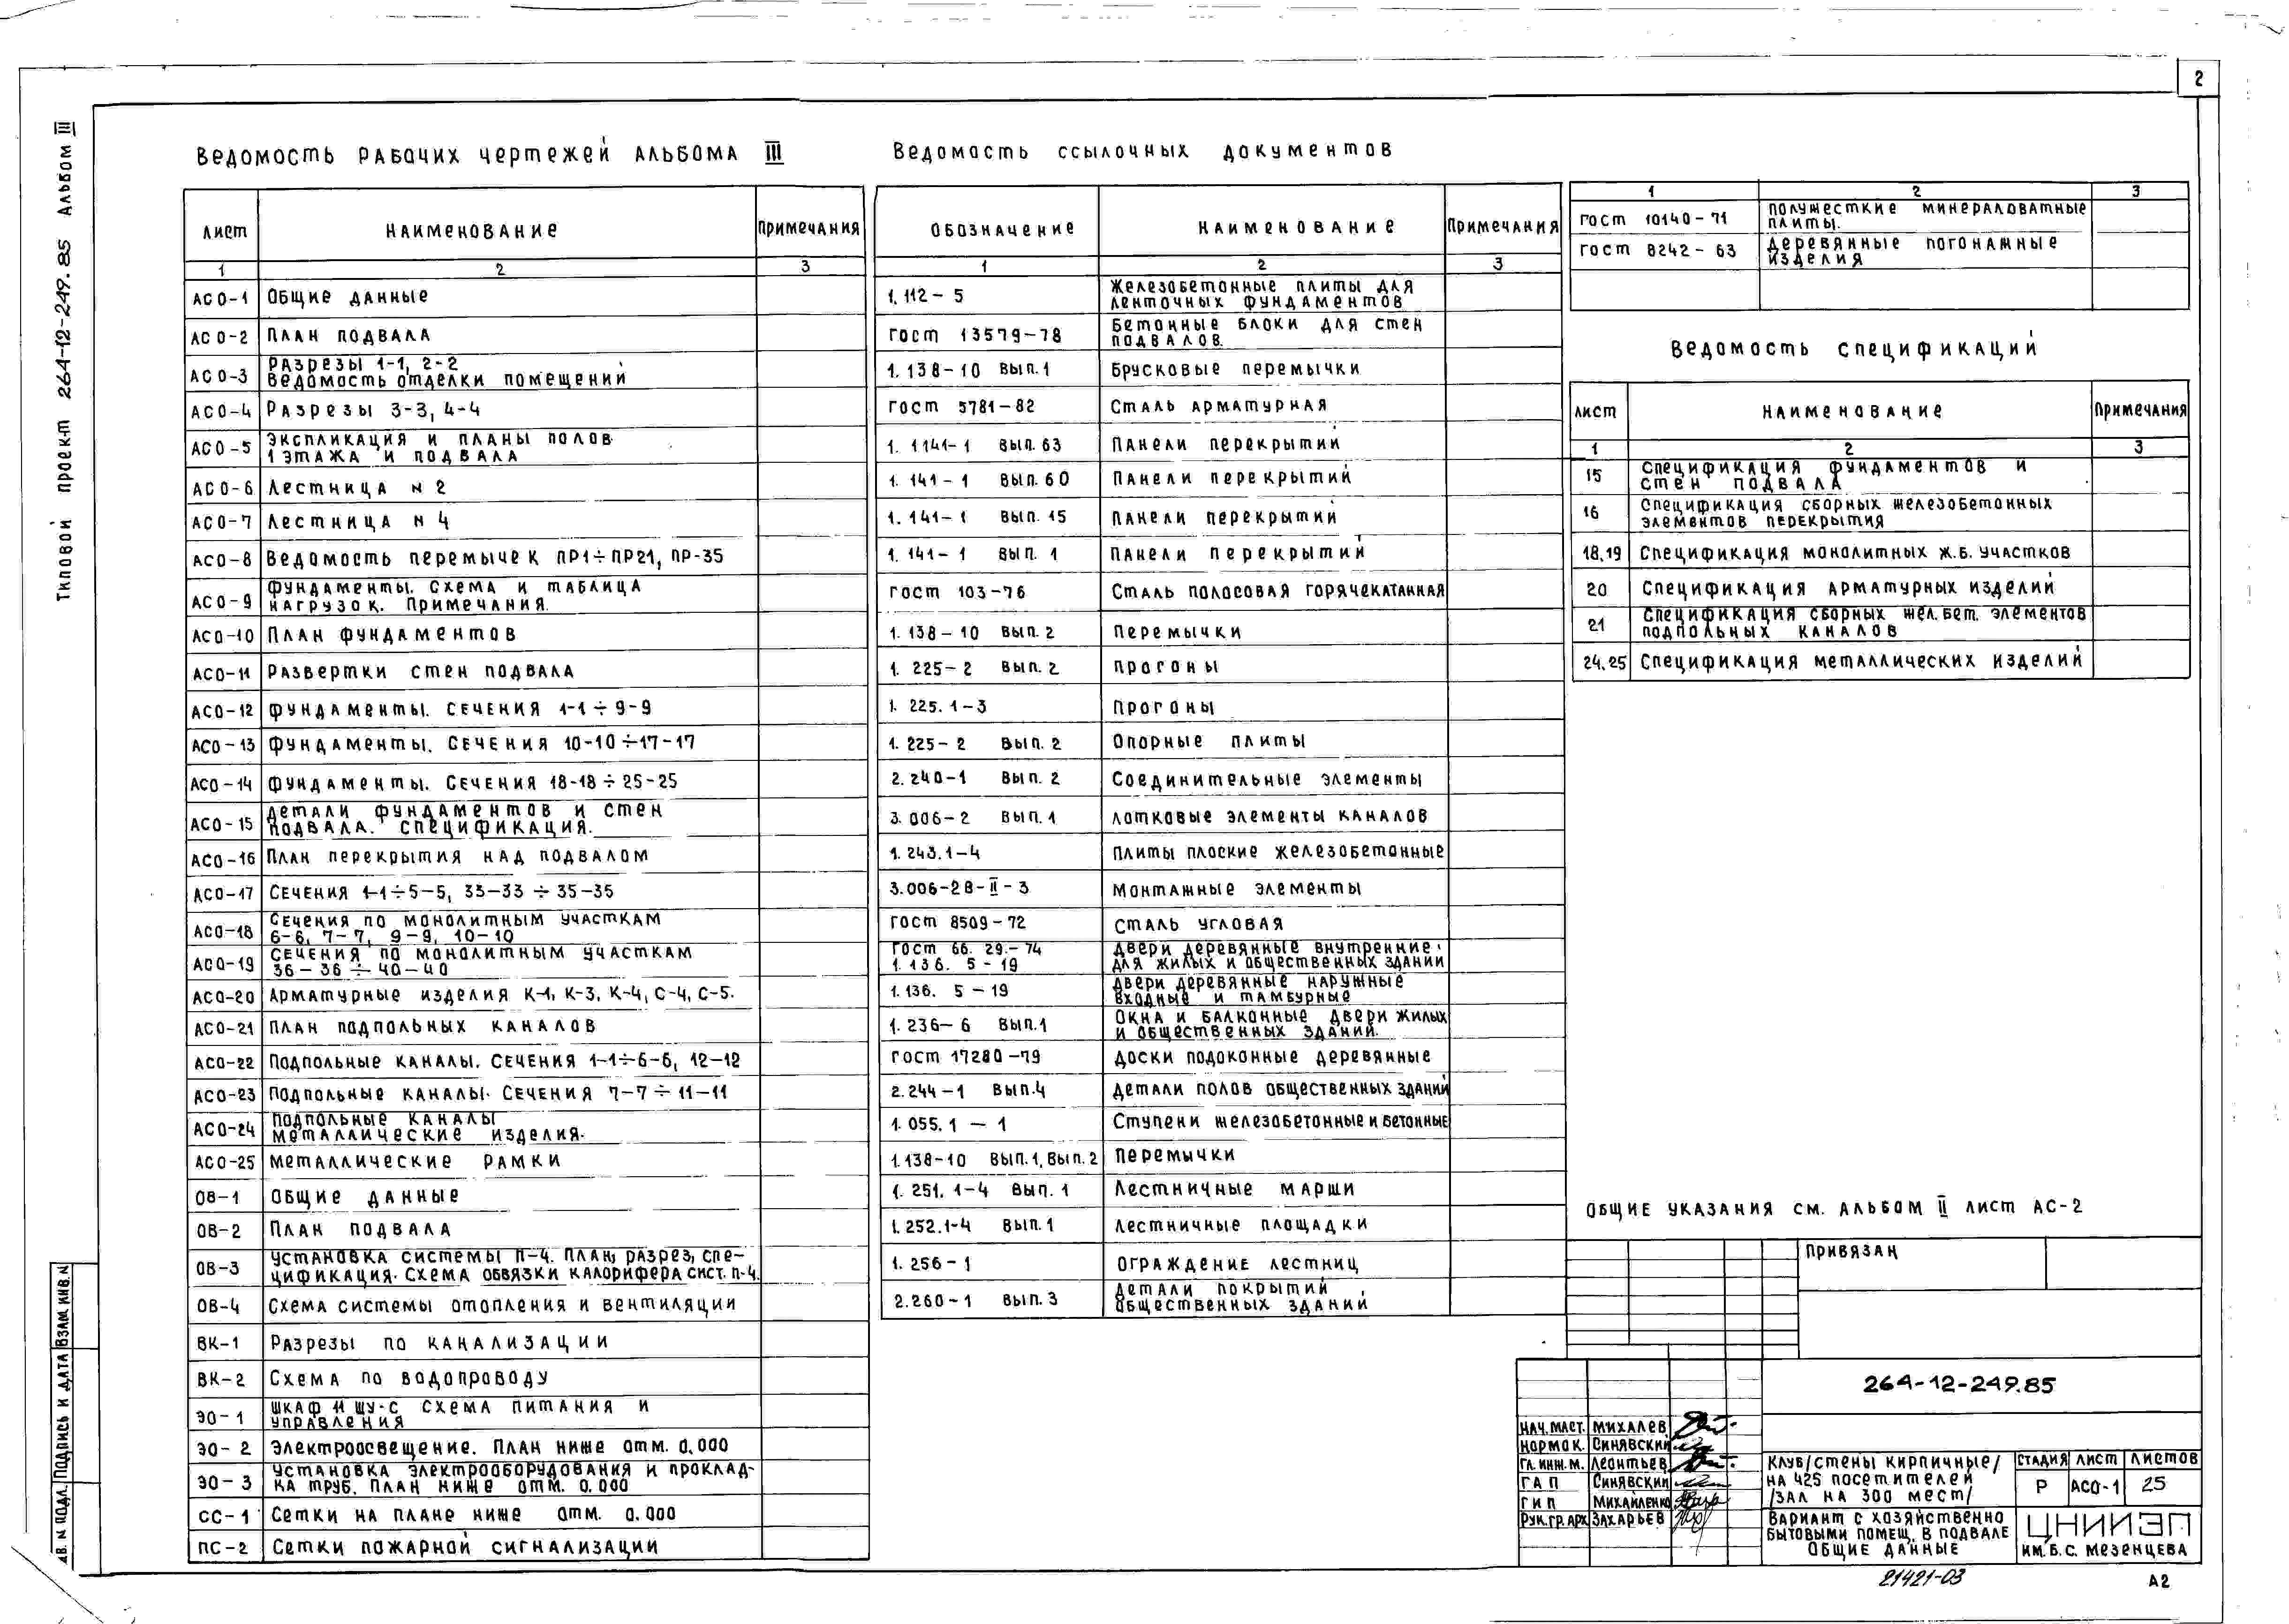 2
Типовой проект 264-12-249.85 Альбом III
Ведомость рабочих чертежей альбома III
Лист Наименование Примечания
1 2 3
АСО-1 Общие данные
АСО-2 План подвала
АСО-3 Разрезы 1-1, 2-2
Ведомость отделки помещений
АСО-4 Разрезы 3-3, 4-4
АСО-5 Экспликация и планы полов
1 этажа и подвала
АСО-6 Лестница N 2
АСО-7 Лестница N 4
АСО-8 Ведомость перемычек ПР1÷ПР21, ПР-35
АСО-9 Фундаменты. Схема и таблица
нагрузок. Примечания.
АСО-10 План фундаментов
АСО-11 Развертки стен подвала
АСО-12 Фундаменты. Сечения 1-1÷9-9
АСО-13 Фундаменты. Сечения 10-10÷17-17
АСО-14 Фундаменты. Сечения 18-18÷25-25
АСО-15 Детали фундаментов и стен
подвала. Спецификация.
АСО-16 План перекрытия над подвалом
АСО-17 Сечения 1-1÷5-5, 33-33÷35-35
АСО-18 Сечения по монолитным участкам
6-6, 7-7, 9-9, 10-10
АСО-19 Сечения по монолитным участкам
36-36÷40-40
АСО-20 Арматурные изделия К-1, К-3, К-4, С-4, С-5.
АСО-21 План подпольных каналов
АСО-22 Подпольные каналы. Сечения 1-1÷6-6, 12-12
АСО-23 Подпольные каналы. Сечения 7-7÷11-11
АСО-24 Подпольные каналы
металлические изделия.
АСО-25 Металлические рамки
ОВ-1 Общие данные
ОВ-2 План подвала
ОВ-3 Установка системы П-4. План, разрез, спе-
цификация. Схема обвязки калорифера сист. П-4.
ОВ-4 Схема системы отопления и вентиляции
ВК-1 Разрезы по канализации
ВК-2 Схема по водопроводу
ЭО-1 Шкаф 11 ШУ-С схема питания и
управления
ЭО-2 Электроосвещение. План ниже отм. 0.000
ЭО-3 Установка электрооборудования и проклад-
ка труб. План ниже отм. 0.000
СС-1 Сетки на плане ниже отм. 0.000
ПС-2 Сетки пожарной сигнализации
Ведомость ссылочных документов
Обозначение Наименование Примечания
1 2 3
1.112-5 Железобетонные плиты для
ленточных фундаментов
ГОСТ 13579-78 Бетонные блоки для стен
подвалов.
1.138-10 вып.1 Брусковые перемычки
ГОСТ 5781-82 Сталь арматурная
1.1141-1 вып.63 Панели перекрытий
1.141-1 вып.60 Панели перекрытий
1.141-1 вып.15 Панели перекрытий
1.141-1 вып.1 Панели перекрытий
ГОСТ 103-76 Сталь полосовая горячекатанная
1.138-10 вып.2 Перемычки
1.225-2 вып.2 Прогоны
1.225.1-3 Прогоны
1.225-2 вып.2 Опорные плиты
2.240-1 вып.2 Соединительные элементы
3.006-2 вып.1 Лотковые элементы каналов
1.243.1-4 Плиты плоские железобетонные
3.006-2В-II-3 Монтажные элементы
ГОСТ 8509-72 Сталь угловая
ГОСТ 66.29.-74 Двери деревянные внутренние
1.136.5-19 для жилых и общественных зданий
1.136.5-19 Двери деревянные наружные
входные и тамбурные
1.236-6 вып.1 Окна и балконные двери жилых
и общественных зданий.
ГОСТ 17280-79 Доски подоконные деревянные
2.244-1 вып.4 Детали полов общественных зданий
1.055.1-1 Ступени железобетонные и бетонные
1.138-10 вып.1, вып.2 Перемычки
1.251.1-4 вып.1 Лестничные марши
1.252.1-4 вып.1 Лестничные площадки
1.256-1 Ограждение лестниц
2.260-1 вып.3 Детали покрытий
общественных зданий
1 2 3
ГОСТ 10140-71 Полужесткие минераловатные
плиты.
ГОСТ 8242-63 Деревянные погонажные
изделия
Ведомость спецификаций
Лист Наименование Примечания
1 2 3
15 Спецификация фундаментов и
стен подвала
16 Спецификация сборных железобетонных
элементов перекрытия
18,19 Спецификация монолитных ж.б. участков
20 Спецификация арматурных изделий
21 Спецификация сборных жел.бет. элементов
подпольных каналов
24,25 Спецификация металлических изделий
Общие указания см. альбом II лист АС-2
Привязан
264-12-249.85
Нач. маст. Михалев
Нормок. Синявский
Гл. инж. м. Леонтьев
ГАП Синявский
ГИП Михайленко
Рук. гр. арх. Захарьев
Клуб/стены кирпичные/
на 425 посетителей
/зал на 300 мест/
Стадия Лист Листов
Р АСО-1 25
Вариант с хозяйственно
бытовыми помещ. в подвале
Общие данные
ЦНИИЭП
им. Б.С. Мезенцева
21421-03
А2
Подпись и дата
Взам. инв. N
ИВ. N подл.